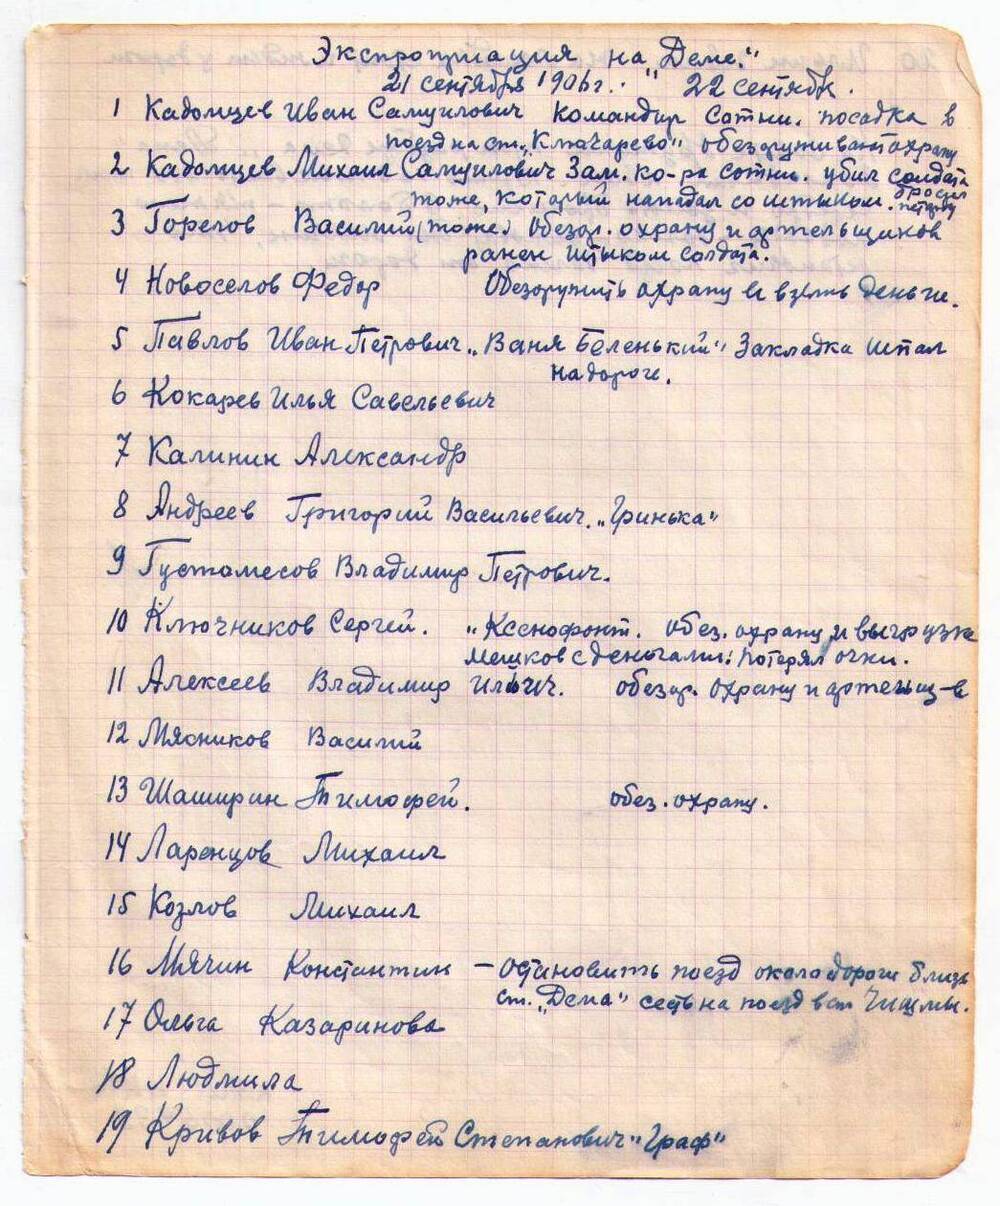 Экспроприация на „Деме."
21 сентября 1906 г. 22 сентябр.
1 Кадомцев Иван Самуилович командир сотни. посадка в
поезд на ст. „Ключарево" обезоруживают охрану
2 Кадомцев Михаил Самуилович Зам. ко-ра сотни. убил солдата
тоже, который нападал со штыком. бросил петарду
3 Горелов Василий (тоже) Обезор. охрану и артельщиков
ранен штыком солдата.
4 Новоселов Федор Обезоружить охрану и взять деньги.
5 Павлов Иван Петрович „Ваня Беленький" Закладка шпал
на дороге.
6 Кокарев Илья Савельевич
7 Калинин Александр
8 Андреев Григорий Васильевич. „Гринька"
9 Густомесов Владимир Петрович.
10 Ключников Сергей. „Ксенофонт. обез. охрану и выгрузка
мешков с деньгами. потерял очки.
11 Алексеев Владимир Ильич. обезор. охрану и артельщ-в
12 Мясников Василий
13 Шаширин Тимофей. обез. охрану.
14 Ларенцов Михаил
15 Козлов Михаил
16 Мячин Константин – остановить поезд около дороги близь
ст. „Дема" сесть на поезд в ст Чишмы.
17 Ольга Казаринова
18 Людмила
19 Кривов Тимофей Степанович „Граф"